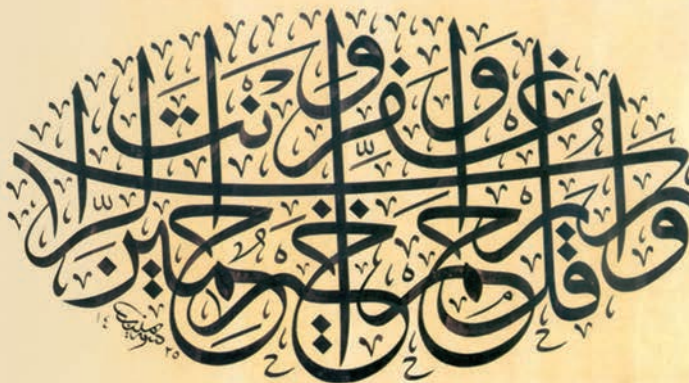 وقل رب اغفر وارحم وأنت خير الراحمين
١٤٢٥